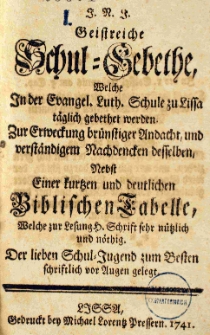 J. N. J.
Geistreiche
Schul-Gebethe,
Welche
In der Evangel. Luth. Schule zu Lissa
täglich gebethet werden.
Zur Erweckung brünstiger Andacht, und
verständigem Nachdencken desselben,
Nebst
Einer kurtzen und deutlichen
Biblischen Tabelle,
Welche zur Lesung H. Schrift sehr nützlich
und nöthig.
Der lieben Schul-Jugend zum Besten
schriftlich vor Augen gelegt.
LISSA,
Gedruckt bey Michael Lorentz Pressern. 1741.